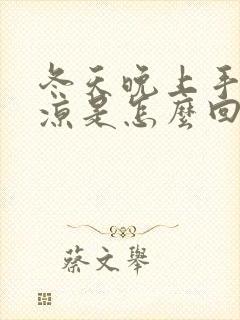 冬天晚上手
凉是怎麼回
蔡文舉